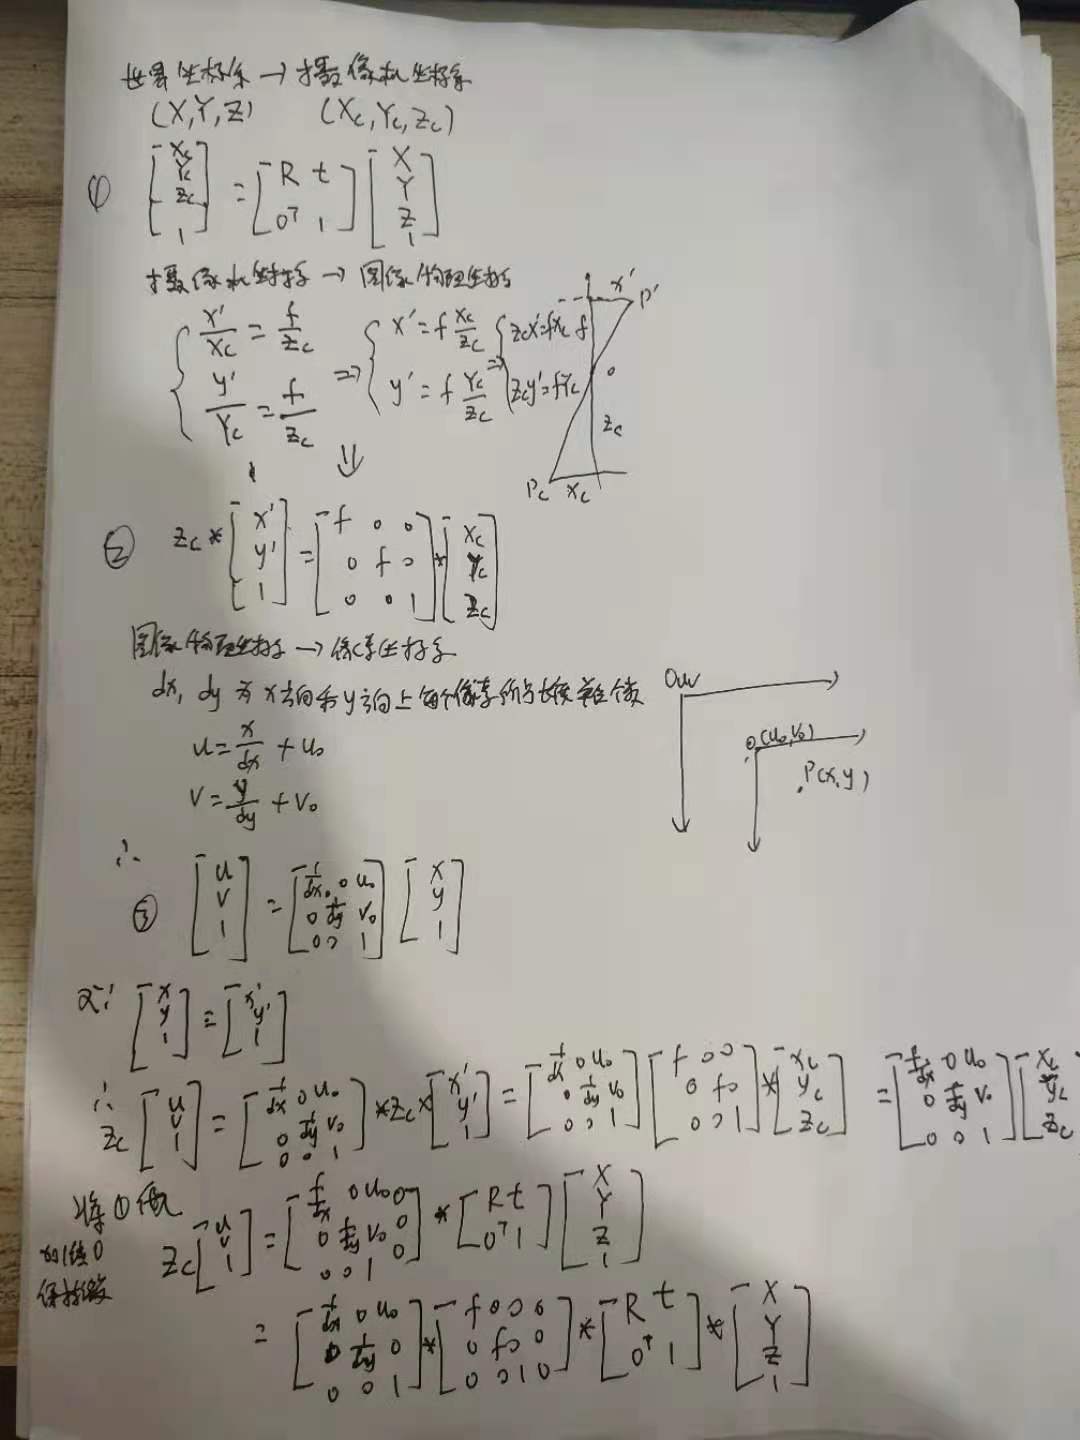 世界坐标系 → 摄像机坐标系
(X,Y,Z) (Xc,Yc,Zc)
① [Xc Yc Zc 1] = [R t; 0ᵀ 1] [X Y Z 1]
摄像机坐标系 → 图像物理坐标
{ x'/Xc = f/Zc, y'/Yc = f/Zc ⇒ { x' = f Xc/Zc, y' = f Yc/Zc ⇒ { Zcx'=fXc, Zcy'=fYc
x' P'
f
o
Zc
Pc Xc
⇓
② Zc * [x' y' 1] = [f 0 0; 0 f 0; 0 0 1] * [Xc Yc Zc]
图像物理坐标系 → 像素坐标系
dx, dy 为 x方向和y方向上每个像素所占长度单位个数
u = x/dx + u₀
v = y/dy + v₀
Ouv
O(u₀,v₀)
P(x,y)
∴
③ [u v 1] = [1/dx 0 u₀; 0 1/dy v₀; 0 0 1] [x y 1]
又∵ [x y 1] = [x' y' 1]
∴ Zc [u v 1] = [1/dx 0 u₀; 0 1/dy v₀; 0 0 1] * Zc * [x' y' 1] = [1/dx 0 u₀; 0 1/dy v₀; 0 0 1] [f 0 0; 0 f 0; 0 0 1] * [Xc Yc Zc] = [f/dx 0 u₀; 0 f/dy v₀; 0 0 1] [Xc Yc Zc]
将①代
Zc [u v 1] = [f/dx 0 u₀ 0; 0 f/dy v₀ 0; 0 0 1 0] * [R t; 0ᵀ 1] [X Y Z 1]
= [1/dx 0 u₀; 0 1/dy 0; 0 0 1] * [f 0 0 0; 0 f 0 0; 0 0 1 0] * [R t; 0ᵀ 1] * [X Y Z 1]